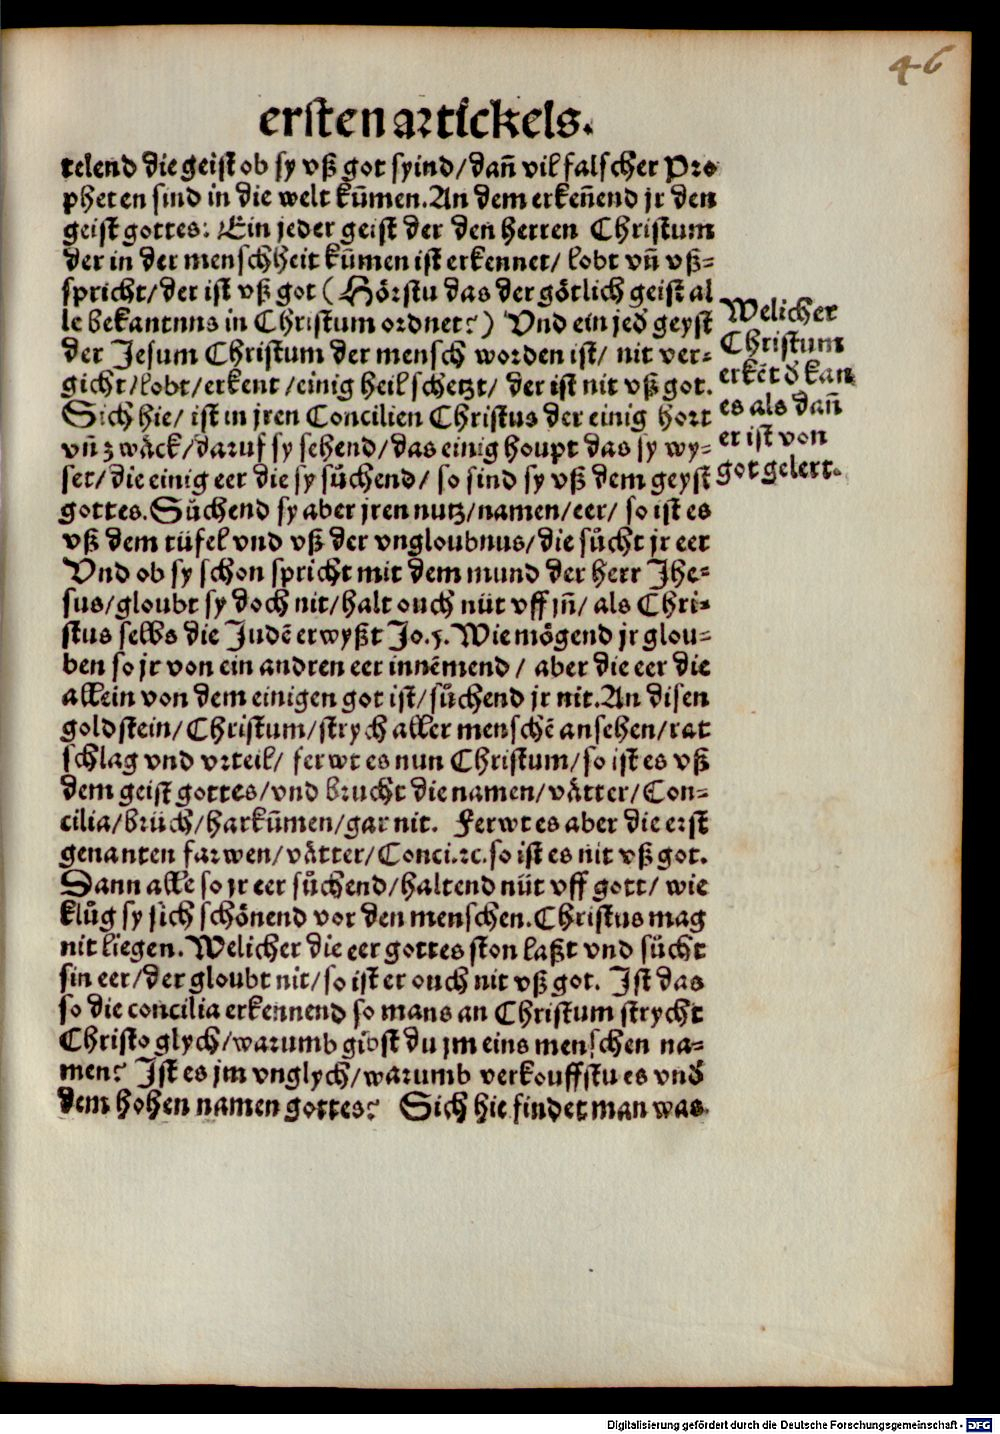 46
ersten artickels.
telend die geist ob sy vß got syind/dañ vil falscher Pro
pheten sind in die welt kūmen.An dem erkeñend jr den
geist gottes: Ein jeder geist der den herren Christum
der in der menschheit kūmen ist erkennet/ lobt vñ vß-
spricht/der ist vß got (Hörstu das der götlich geist al
le bekantnus in Christum ordnet?) Vnd ein jed̕ geyst
der Jesum Christum der mensch worden ist/ nit ver-
gicht/lobt/erkent/einig heil schetzt/ der ist nit vß got.
Sich hie/ ist in jren Concilien Christus der einig hort
vñ zwäck/daruf sy sehend/das einig houpt das sy wy-
set/die einig eer die sy sůchend/ so sind sy vß dem geyst
gottes.Sůchend sy aber jren nutz/namen/eer/ so ist es
vß dem tüfel vnd vß der vngloubnus/die sůcht jr eer
Vnd ob sy schon spricht mit dem mund der herr Jhe-
sus/gloubt sy doch nit/halt ouch nüt vff jñ/ als Chri-
stus selbs die Judē erwyßt Jo.5.Wie mögend jr glou-
ben so jr von ein andren eer innēmend/ aber die eer die
allein von dem einigen got ist/sůchend jr nit.An disen
goldstein/Christum/strych aller menschē ansehen/rat
schlag vnd vrteil/ ferwt es nun Christum/so ist es vß
dem geist gottes/vnd brucht die namen/vätter/Con-
cilia/brüch/harkūmen/gar nit. Ferwt es aber die erst
genanten farwen/vätter/Conci.ꝛc.so ist es nit vß got.
Dann alle so jr eer sůchend/haltend nüt vff gott/ wie
klůg sy sich schönend vor den menschen.Christus mag
nit liegen.Welicher die eer gottes ston laßt vnd sůcht
sin eer/der gloubt nit/so ist er ouch nit vß got. Ist das
so die concilia erkennend so mans an Christum strycht
Christo glych/warumb gibst du jm eins menschen na-
men? Ist es jm vnglych/warumb verkouffstu es vnd̕
dem hohen namen gottes? Sich hie findet man was
Welicher
Christum
erkēt d̕ kan
es als dañ
er ist von
got gelert.
Digitalisierung gefördert durch die Deutsche Forschungsgemeinschaft - DFG